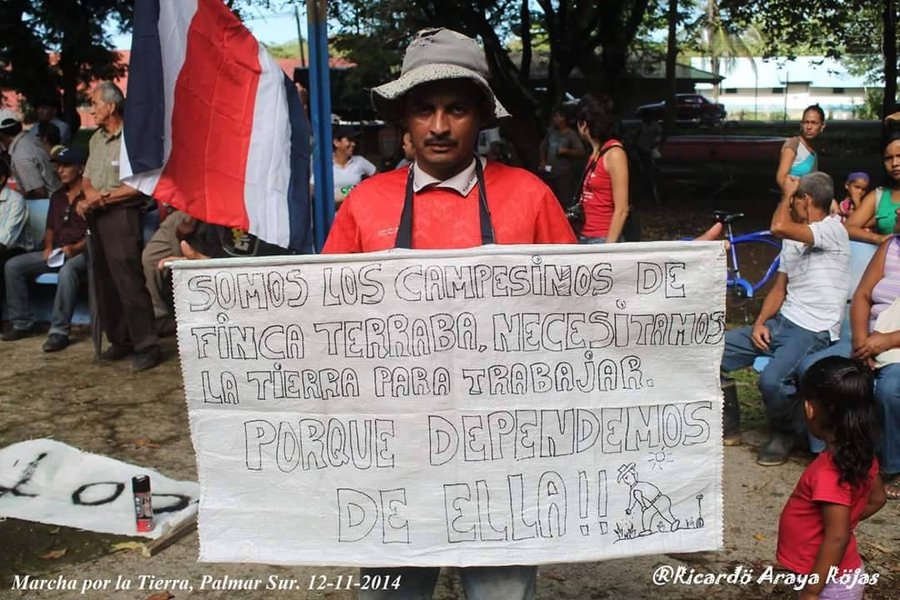 SOMOS LOS CAMPESINOS DE
FINCA TERRABA, NECESITAMOS
LA TIERRA PARA TRABAJAR.
PORQUE DEPENDEMOS
DE ELLA!!
Los
Marcha por la Tierra, Palmar Sur. 12-11-2014
®Ricardö Araya Röjas